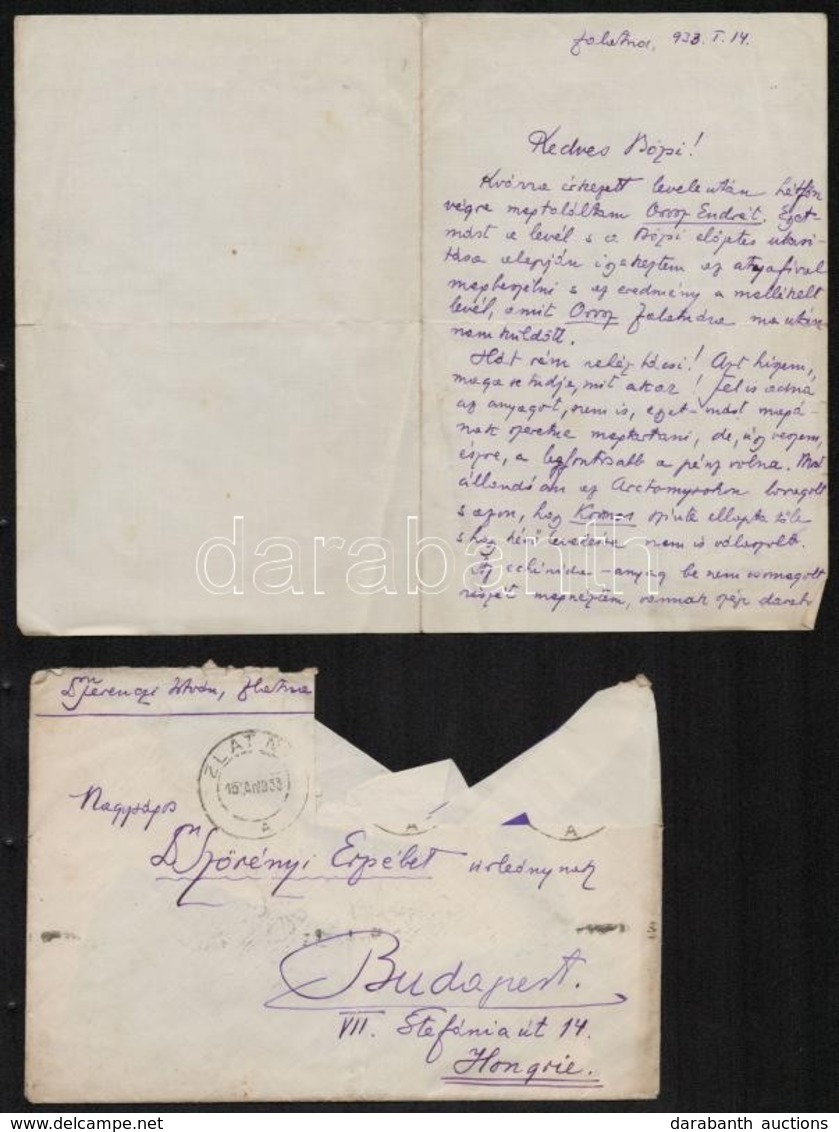 Zalatna, 933. I. 14.
Kedves Bözsi!
Kvárra érkezett levele után hétfőn
végre megtaláltam Orosz Endrét. Ezt-
mást a levél s a Bözsi előzetes utasí-
tása alapján igyekeztem az atyafival
megbeszélni s az eredmény a mellékelt
levél, amit Orosz Zalatnára ma után
nem küldött.
Hát rém nehéz bácsi! Azt hiszem,
maga se tudja, mit akar! Fel is adná
az anyagot, nem is, ezt-mást magá-
nak szeretne megtartani, de, úgy veszem,
észre, a legfontosabb a pénz volna. Most
állandóan az Arctomysokon lovagolt
s azon, hogy Kormos szinte ellopta tőle
s hogy kérő levelére nem is válaszolt.
Az echinida-anyag be nem csomagolt
részét megnéztem, vannak szép darab-
darabanth
Dr Ferenczi István, Zlatna
ZLATNA
15 IAN 933
A
A
A
Nagyságos
Dr Szörényi Erzsébet úrleánynak
Budapest.
VII. Stefánia út 14.
Hongrie.
darabanth auctions